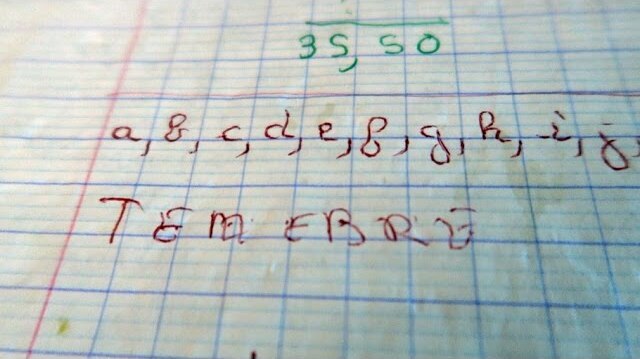 35,50
a, b, c, d, e, f, g, h, i, j,
TEMEBRE